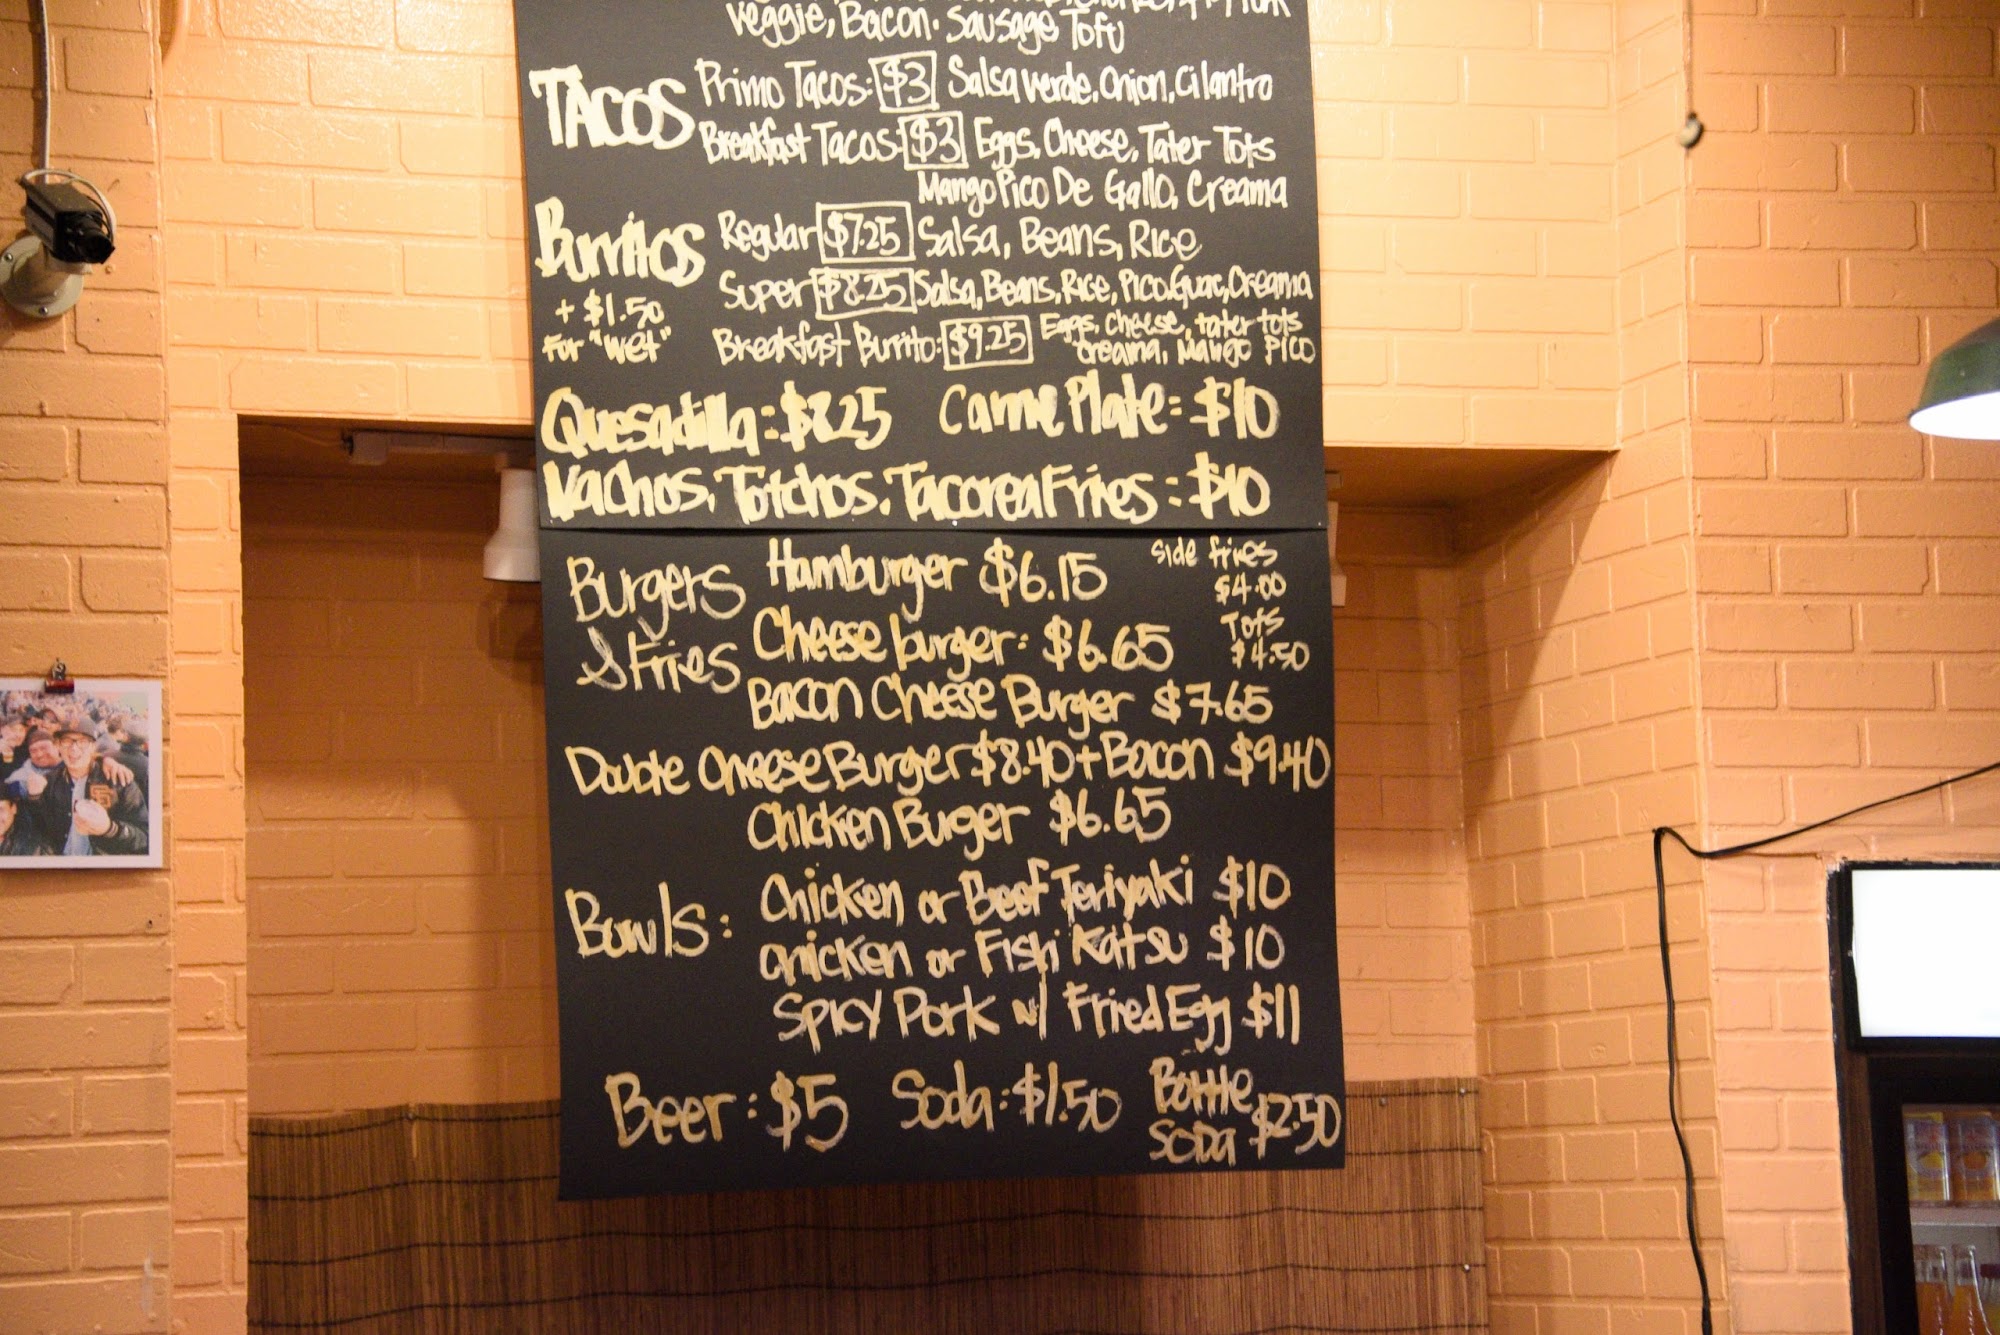 Veggie, Bacon. Sausage Tofu
TACOS
Primo Tacos: $3 Salsa verde, Onion, Cilantro
Breakfast Tacos: $3 Eggs, Cheese, Tater Tots
Mango Pico De Gallo, Creama
Burritos
Regular $7.25 Salsa, Beans, Rice
Super $8.25 Salsa, Beans, Rice, Pico, Guac, Creama
+ $1.50
For "Wet"
Breakfast Burrito: $9.25 Eggs, Cheese, tater tots
Creama, Mango PICO
Quesadilla: $8.25 Carne Plate: $10
Nachos, Totchos, Tacorea Fries: $10
Burgers
& Fries
Hamburger $6.15
Side fries
$4.00
Tots
$4.50
Cheese burger: $6.65
Bacon Cheese Burger $7.65
Double Cheese Burger $8.40 + Bacon $9.40
Chicken Burger $6.65
Bowls:
Chicken or Beef Teriyaki $10
chicken or Fish Katsu $10
Spicy Pork w/ Fried Egg $11
Beer: $5 Soda: $1.50
Bottle
Soda $2.50